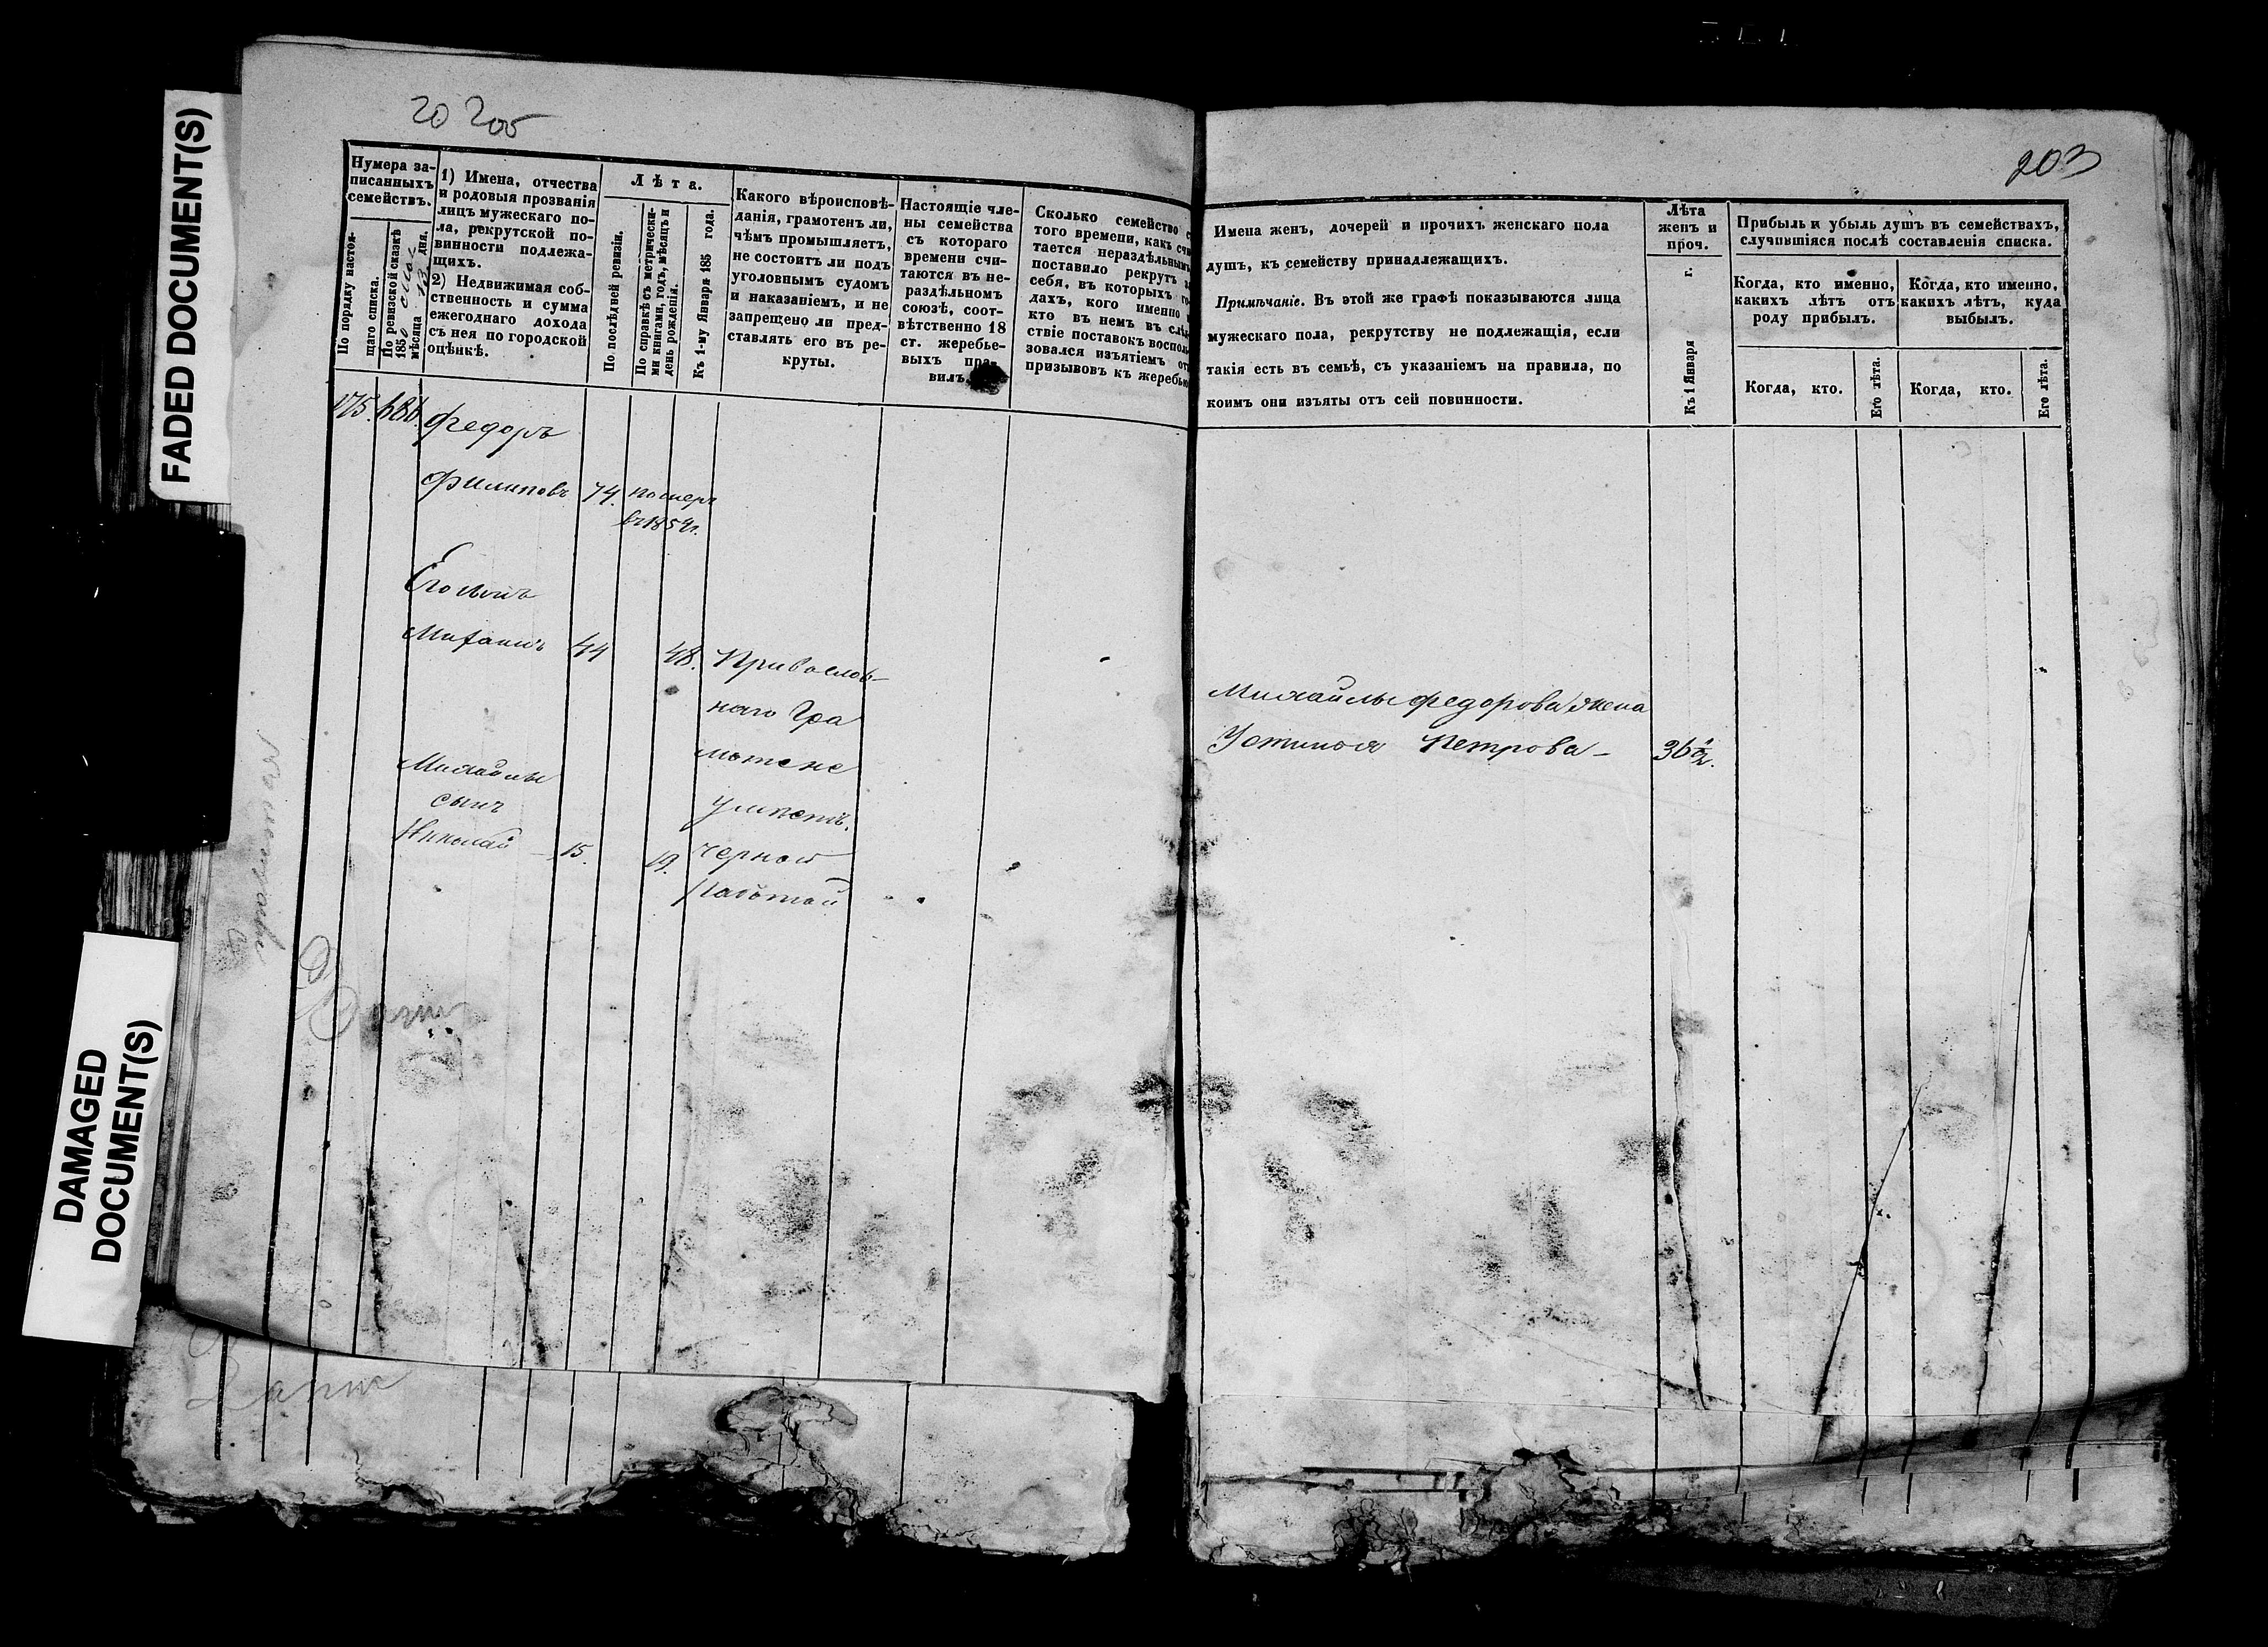 FADED DOCUMENT(S)
DAMAGED
DOCUMENT(S)
203
Нумера за-
писанныхъ
семействъ.
По порядку настоя-
щаго списка.
По ревизской сказкѣ
1850
мѣсяца 13 дня.
1) Имена, отчества
и родовыя прозванія
лицъ мужескаго по-
ла, рекрутской по-
винности подлежа-
щихъ.
2) Недвижимая соб-
ственность и сумма
ежегоднаго дохода
съ нея по городской
оцѣнкѣ.
Лѣта.
По послѣдней ревизіи.
По справкѣ съ метрически-
ми книгами, годъ, мѣсяцъ и
день рожденія.
Къ 1-му Января 185 года.
Какого вѣроисповѣ-
данія, грамотенъ ли,
чѣмъ промышляетъ,
не состоитъ ли подъ
уголовнымъ судомъ
и наказаніемъ, и не
запрещено ли пред-
ставлять его въ ре-
круты.
Настоящіе чле-
ны семейства
съ котораго
времени счи-
таются въ не-
раздѣльномъ
союзѣ, соот-
вѣтственно 18
ст. жеребье-
выхъ пра-
вилъ.
Сколько семейство с
того времени, какъ счи
тается нераздѣльнымъ
поставило рекрутъ за
себя, въ которыхъ го
дахъ, кого именно и
кто въ немъ въ слѣд
ствіе поставокъ восполь
зовался изъятіемъ отъ
призывовъ къ жеребью
Имена женъ, дочерей и прочихъ женскаго пола
душъ, къ семейству принадлежащихъ.
Примѣчаніе. Въ этой же графѣ показываются лица
мужескаго пола, рекрутству не подлежащія, если
такія есть въ семьѣ, съ указаніемъ на правила, по
коимъ они изъяты отъ сей повинности.
Лѣта
женъ и
проч.
Къ 1 Января г.
Прибыль и убыль душъ въ семействахъ,
случившіяся послѣ составленія списка.
Когда, кто именно,
какихъ лѣтъ отъ
роду прибылъ.
Когда, кто именно,
какихъ лѣтъ, куда
выбылъ.
Когда, кто.
Его лѣта.
Когда, кто.
Его лѣта.
175. Федоръ
Филиповъ 74. померъ
въ 1854г.
Его сынъ
Михаилъ 44 48. Православ-
наго Гра
мотене
умѣетъ.
Михайлы
сынъ
Николай - 15. 19. черной
работой
Михайлы Федорова жена
Устинья Петрова - 36